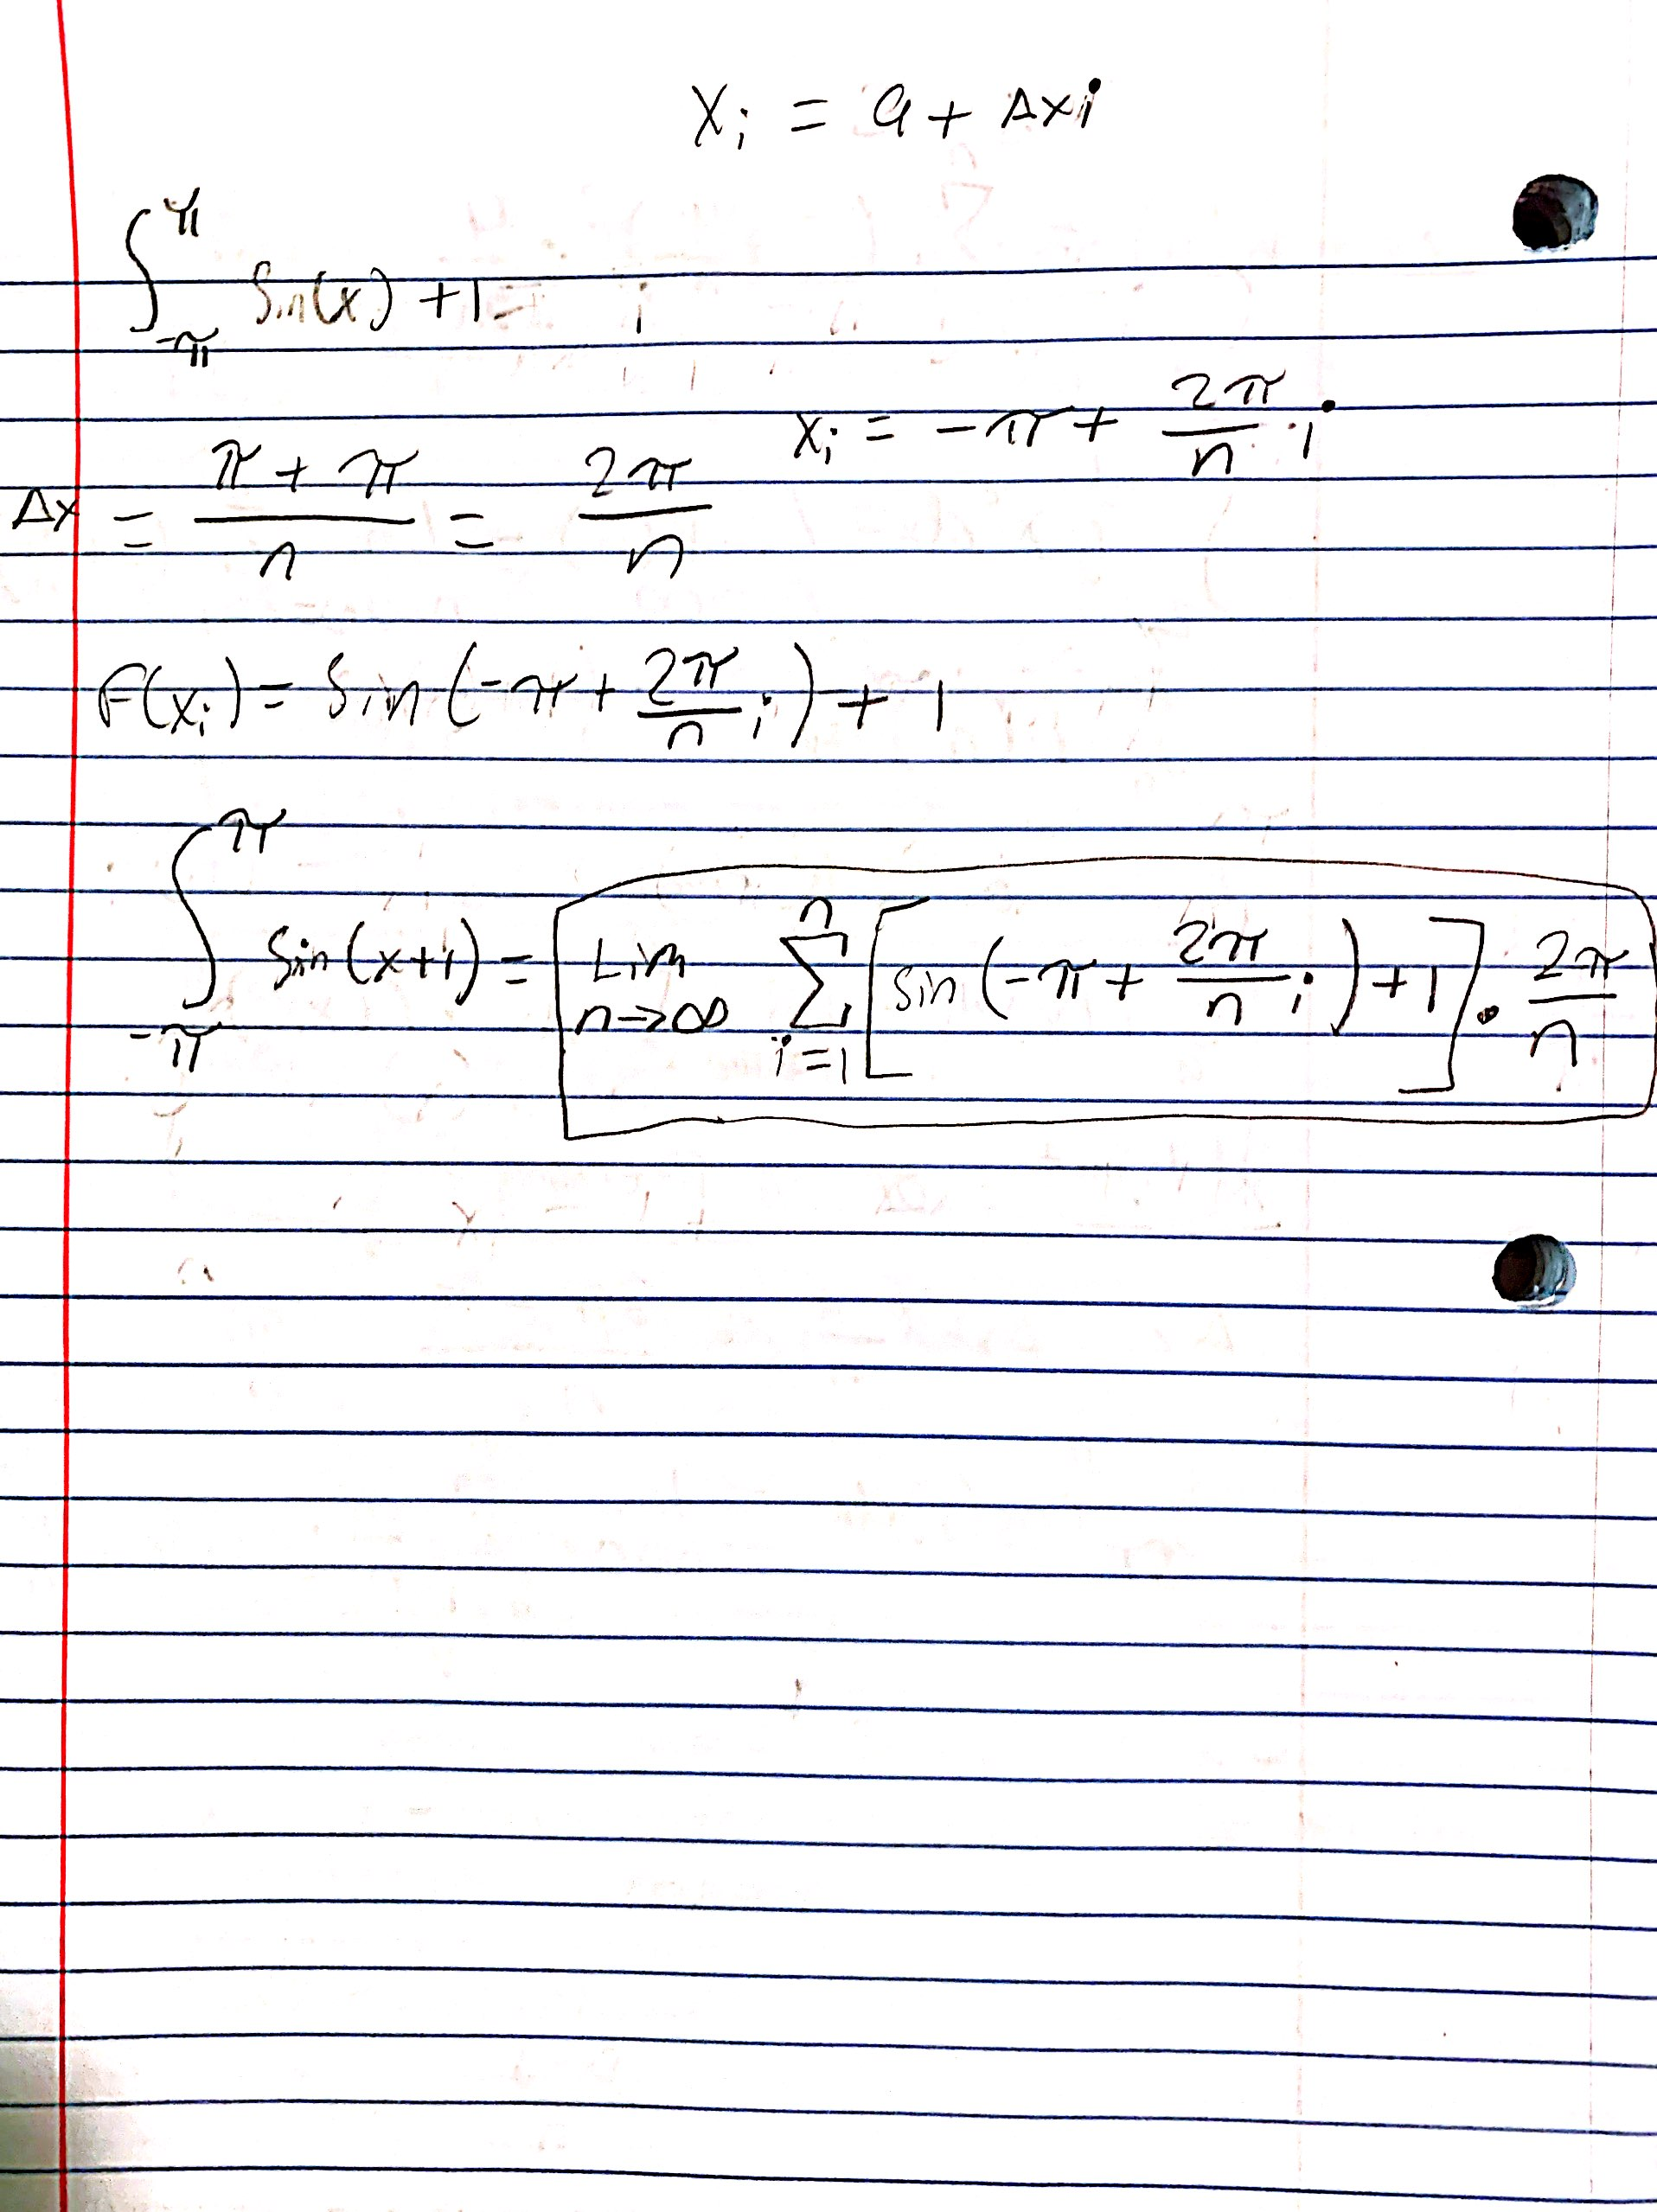 Xᵢ = a + Δxi
∫_{-π}^{π} Sin(x) + 1 =
xᵢ = -π + 2π/n i
Δx = π + π / n = 2π/n
F(xᵢ) = Sin (-π + 2π/n i) + 1
∫_{-π}^{π} Sin(x+1) = Lim n→∞ ∑_{i=1}^{n} [sin (-π + 2π/n i) + 1] · 2π/n